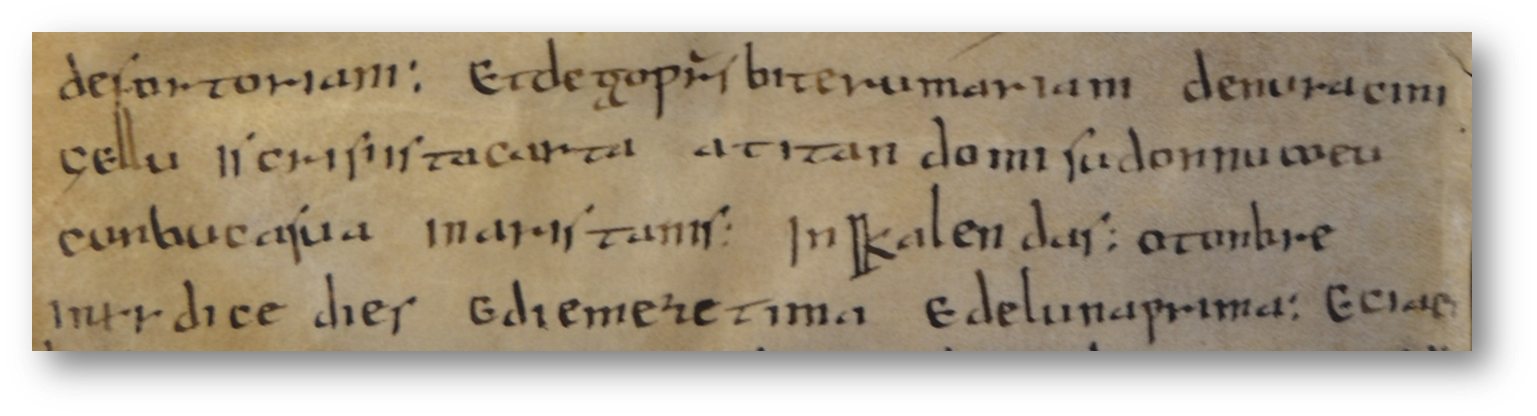 desortoriani: Etdegoprsbiterumariani denuracini
çellu iscrisiistacarta atitan domi sudonnumeu
cunbucasua inaristanis: Inkalen das: otonbre
intrrdice dies Ediemezetima Edelunaprima: